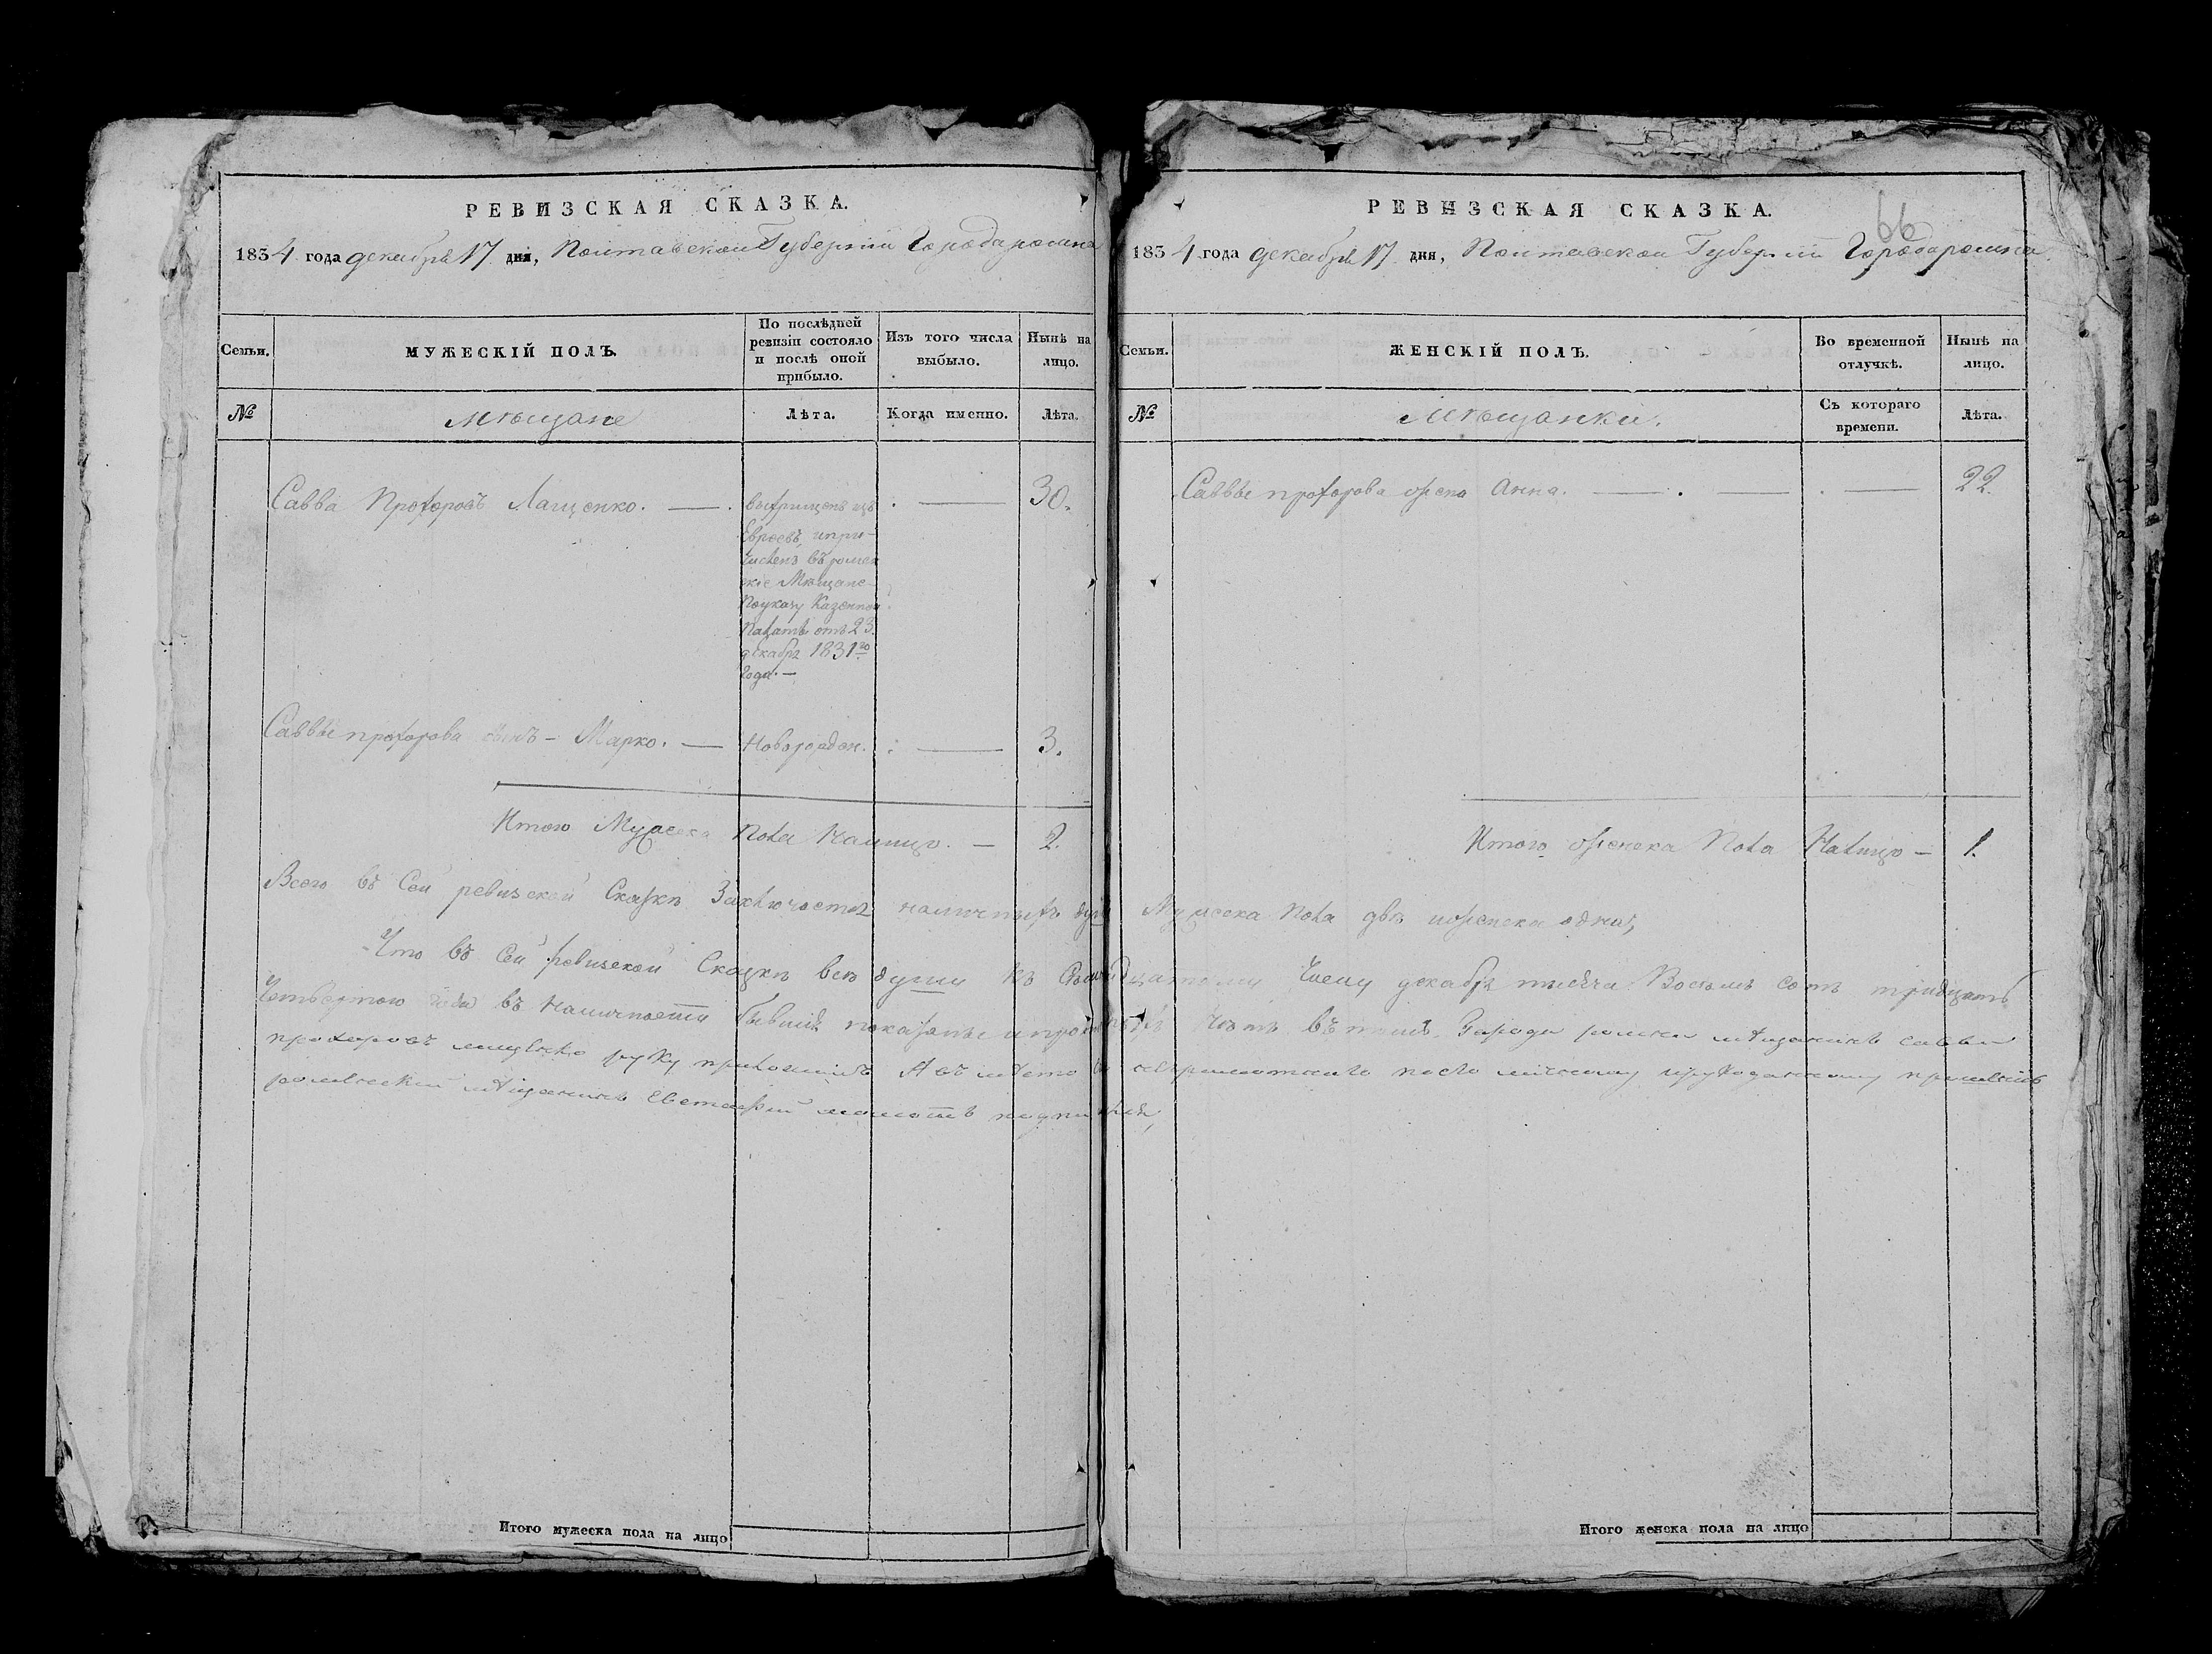 РЕВИЗСКАЯ СКАЗКА.
1834 года декабря 17 дня, Полтавской Губернии Города ромна
Семьи.
МУЖЕСКІЙ ПОЛЪ.
По послѣдней ревизіи состояло и послѣ оной прибыло.
Изъ того числа выбыло.
Нынѣ на лицо.
№
Мѣщане
Лѣта.
Когда именно.
Лѣта.
Савва Прохоровъ Лащенко.
выкрищенъ изъ
Евреевъ, и при-
численъ въ ромен
скіе Мѣщане
По указу Казенной
Палаты отъ 23
декабря 1831го
Года. —
30.
Саввы прохорова сынъ — Марко. —
Новорожден.
3.
Итого Мужеска пола Налицо. — 2.
Всего въ Сей ревизской Скаске Заключается наличныхъ душъ
Что въ Сей ревизской Скаске все души къ
Четвертого года въ наличности бывшие показаны и
прохоровъ лащенко руку приложилъ А въ место
роменский мещанинъ Евстафий
Итого мужеска пола на лицо
66
РЕВИЗСКАЯ СКАЗКА.
1834 года декабря 17 дня, Полтавской Губернии Города ромна.
Семьи.
ЖЕНСКІЙ ПОЛЪ.
Во временной отлучкѣ.
Нынѣ на лицо.
№
Мѣщанки.
Съ котораго времени.
Лѣта.
Саввы прохорова жена Анна.
22.
Итого женска пола Налицо — 1.
Мужеска пола две и женска одна,
Числу декабря тысяча Восемь сотъ тридцать
нетъ въ томъ Города ромна мещанинъ савва
неграмотного по его личному
Итого женска пола на лицо